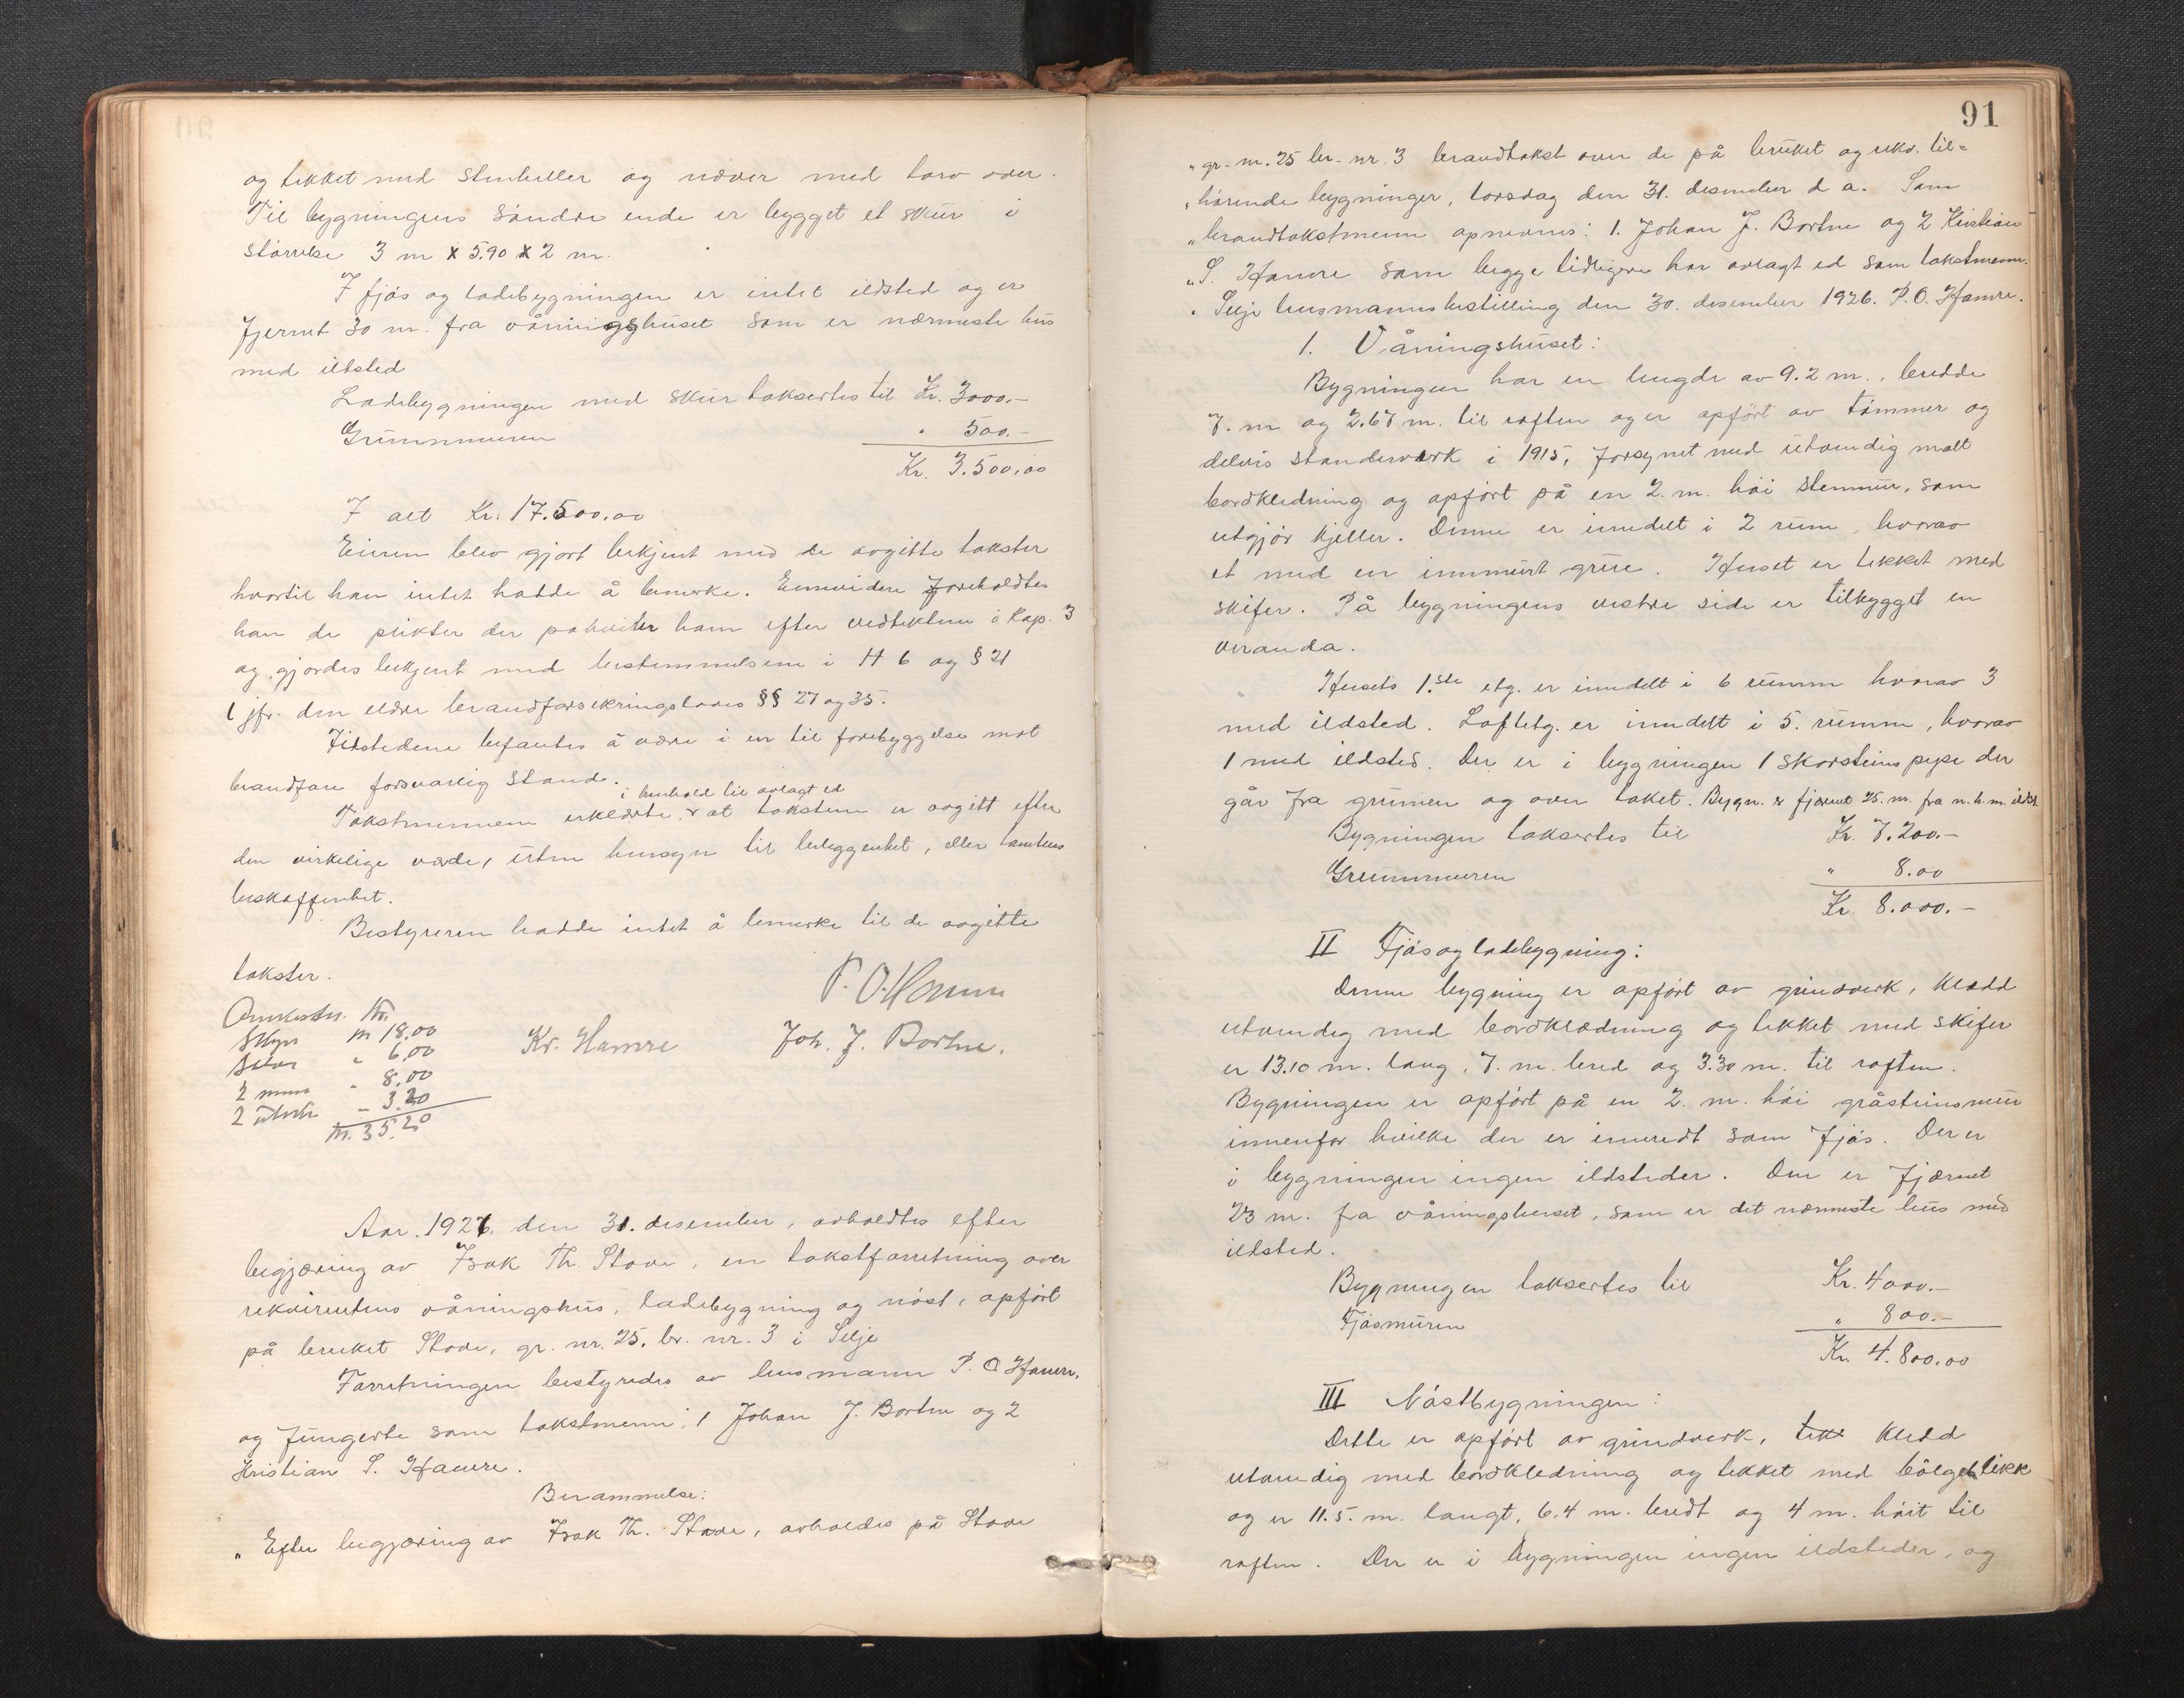 og tekket med stenheller og næver med torv over.
Til bygningens söndre ende er bygget et skur i
större 3 m x 5.90 x 2 m.
I fjös og ladebygningen er intet ildsted og er
fjernet 30 m. fra våningshuset som er nærmeste hus
med ildsted
Ladebygningen med skur taksertes til Kr. 3000.-
Grunnmuren " 500.-
Kr. 3.500,00
I alt Kr. 17.500,00
Eieren blev gjort bekjent med de avgitte takster
hvortil han intet hadde å bemerke. Ennvidere foreholdtes
han de plikter der påhviler ham efter vedtektene i Kap. 3
og gjordes bekjent med bestemmelsene i H 6 og § 21
jfr. den eldre brandforsikringslovs §§ 27 og 35.
Ildstedene befantes å være i en til forebyggelse mot
brandfare forsvarlig stand.
i henhold til avlagt ed
Takstmennene erklærte at taksten er avgitt efter
den virkelige værdi, uten hensyn til beliggenhet, eller tomtens
beskaffenhet.
Bestyreren hadde intet å bemerke til de avgitte
takster.
P. O. Hamre
Omkostn. Kr.
Skyss Kr 18,00
" 6,00
2 menn " 8,00
2 - 3.20
Kr. 35.20
Kr. Hamre Joh. J. Bortne.
Aar 1926. den 31. desember, avholdtes efter
begjæring av Isak Th. Stave, en takstforretning over
rekvirentens våningshus, ladebygning og nöst, opfört
på bruket Stave, gr. nr. 25, br. nr. 3 i Selje
Forretningen bestyredes av lensmann P. O Hamre,
og fungerte som takstmenn: 1 Johan J. Bortne og 2
Kristian S. Hamre.
Berammelse:
" Efter begjæring av Isak Th. Stave, avholdes på Stave
91
" gr. nr. 25 br. nr. 3 brandtakst over de på bruket og rekv. til=
" hörende bygninger, torsdag den 31. desember d a. Som
" brandtakstmenn opnevnes: 1. Johan J. Bortne og 2 Kristian
" S. Hamre som begge tidligere har avlagt ed som takstmenn.
" Selje lensmannsbestilling den 30. desember 1926. P. O. Hamre.
1. Våningshuset:
Bygningen har en lengde av 9.2 m., bredde
7. m og 2.67 m. til raften og er opfört av tömmer og
delvis standerverk i 1915, forsynet med utvendig malt
bordkledning og opfört på en 2. m. höi stenmur, som
utgjör kjeller. Denne er inndelt i 2 rum, hvorav
et med en innmurt grue. Huset er tekket med
skifer. På bygningens vestre side er tilbygget en
veranda.
Husets 1.ste etg. er inndelt i 6 rumm hvorav 3
med ildsted. Loftetg. er inndelt i 5. rumm, hvorav
1 med ildsted. Der er i bygningen 1 skorsteinspipe der
går fra grunnen og over taket. Bygn. er fjærnet 25. m. fra n. h. m. ildst.
Bygningen taksertes til Kr. 7.200.-
Grunnmuren " 8.00
Kr. 8.000.-
II Fjös og ladebygning:
Denne bygning er opfört av grindverk, kledd
utvendig med bordklædning og tekket med skifer
er 13.10 m. lang, 7. m. bred og 3.30 m. til raften.
Bygningen er opfört på en 2. m. höi gråsteinsmur
innenfor hvilke der er innredt som fjös. Der er
i bygningen ingen ildsteder. Den er fjærnet
23 m. fra våningshuset, som er det nærmeste hus med
ildsted.
Bygningen taksertes til Kr. 4000.-
Fjösmuren " 800.-
Kr. 4.800,00
III Nöstbygningen:
Dette er opfört av grindverk, tekk kledd
utvendig med bordkledning og tekket med bölgeblikk
og er 11.5. m. langt, 6.4 m. bredt og 4 m. höit til
raften. Der er i bygningen ingen ildsteder, og